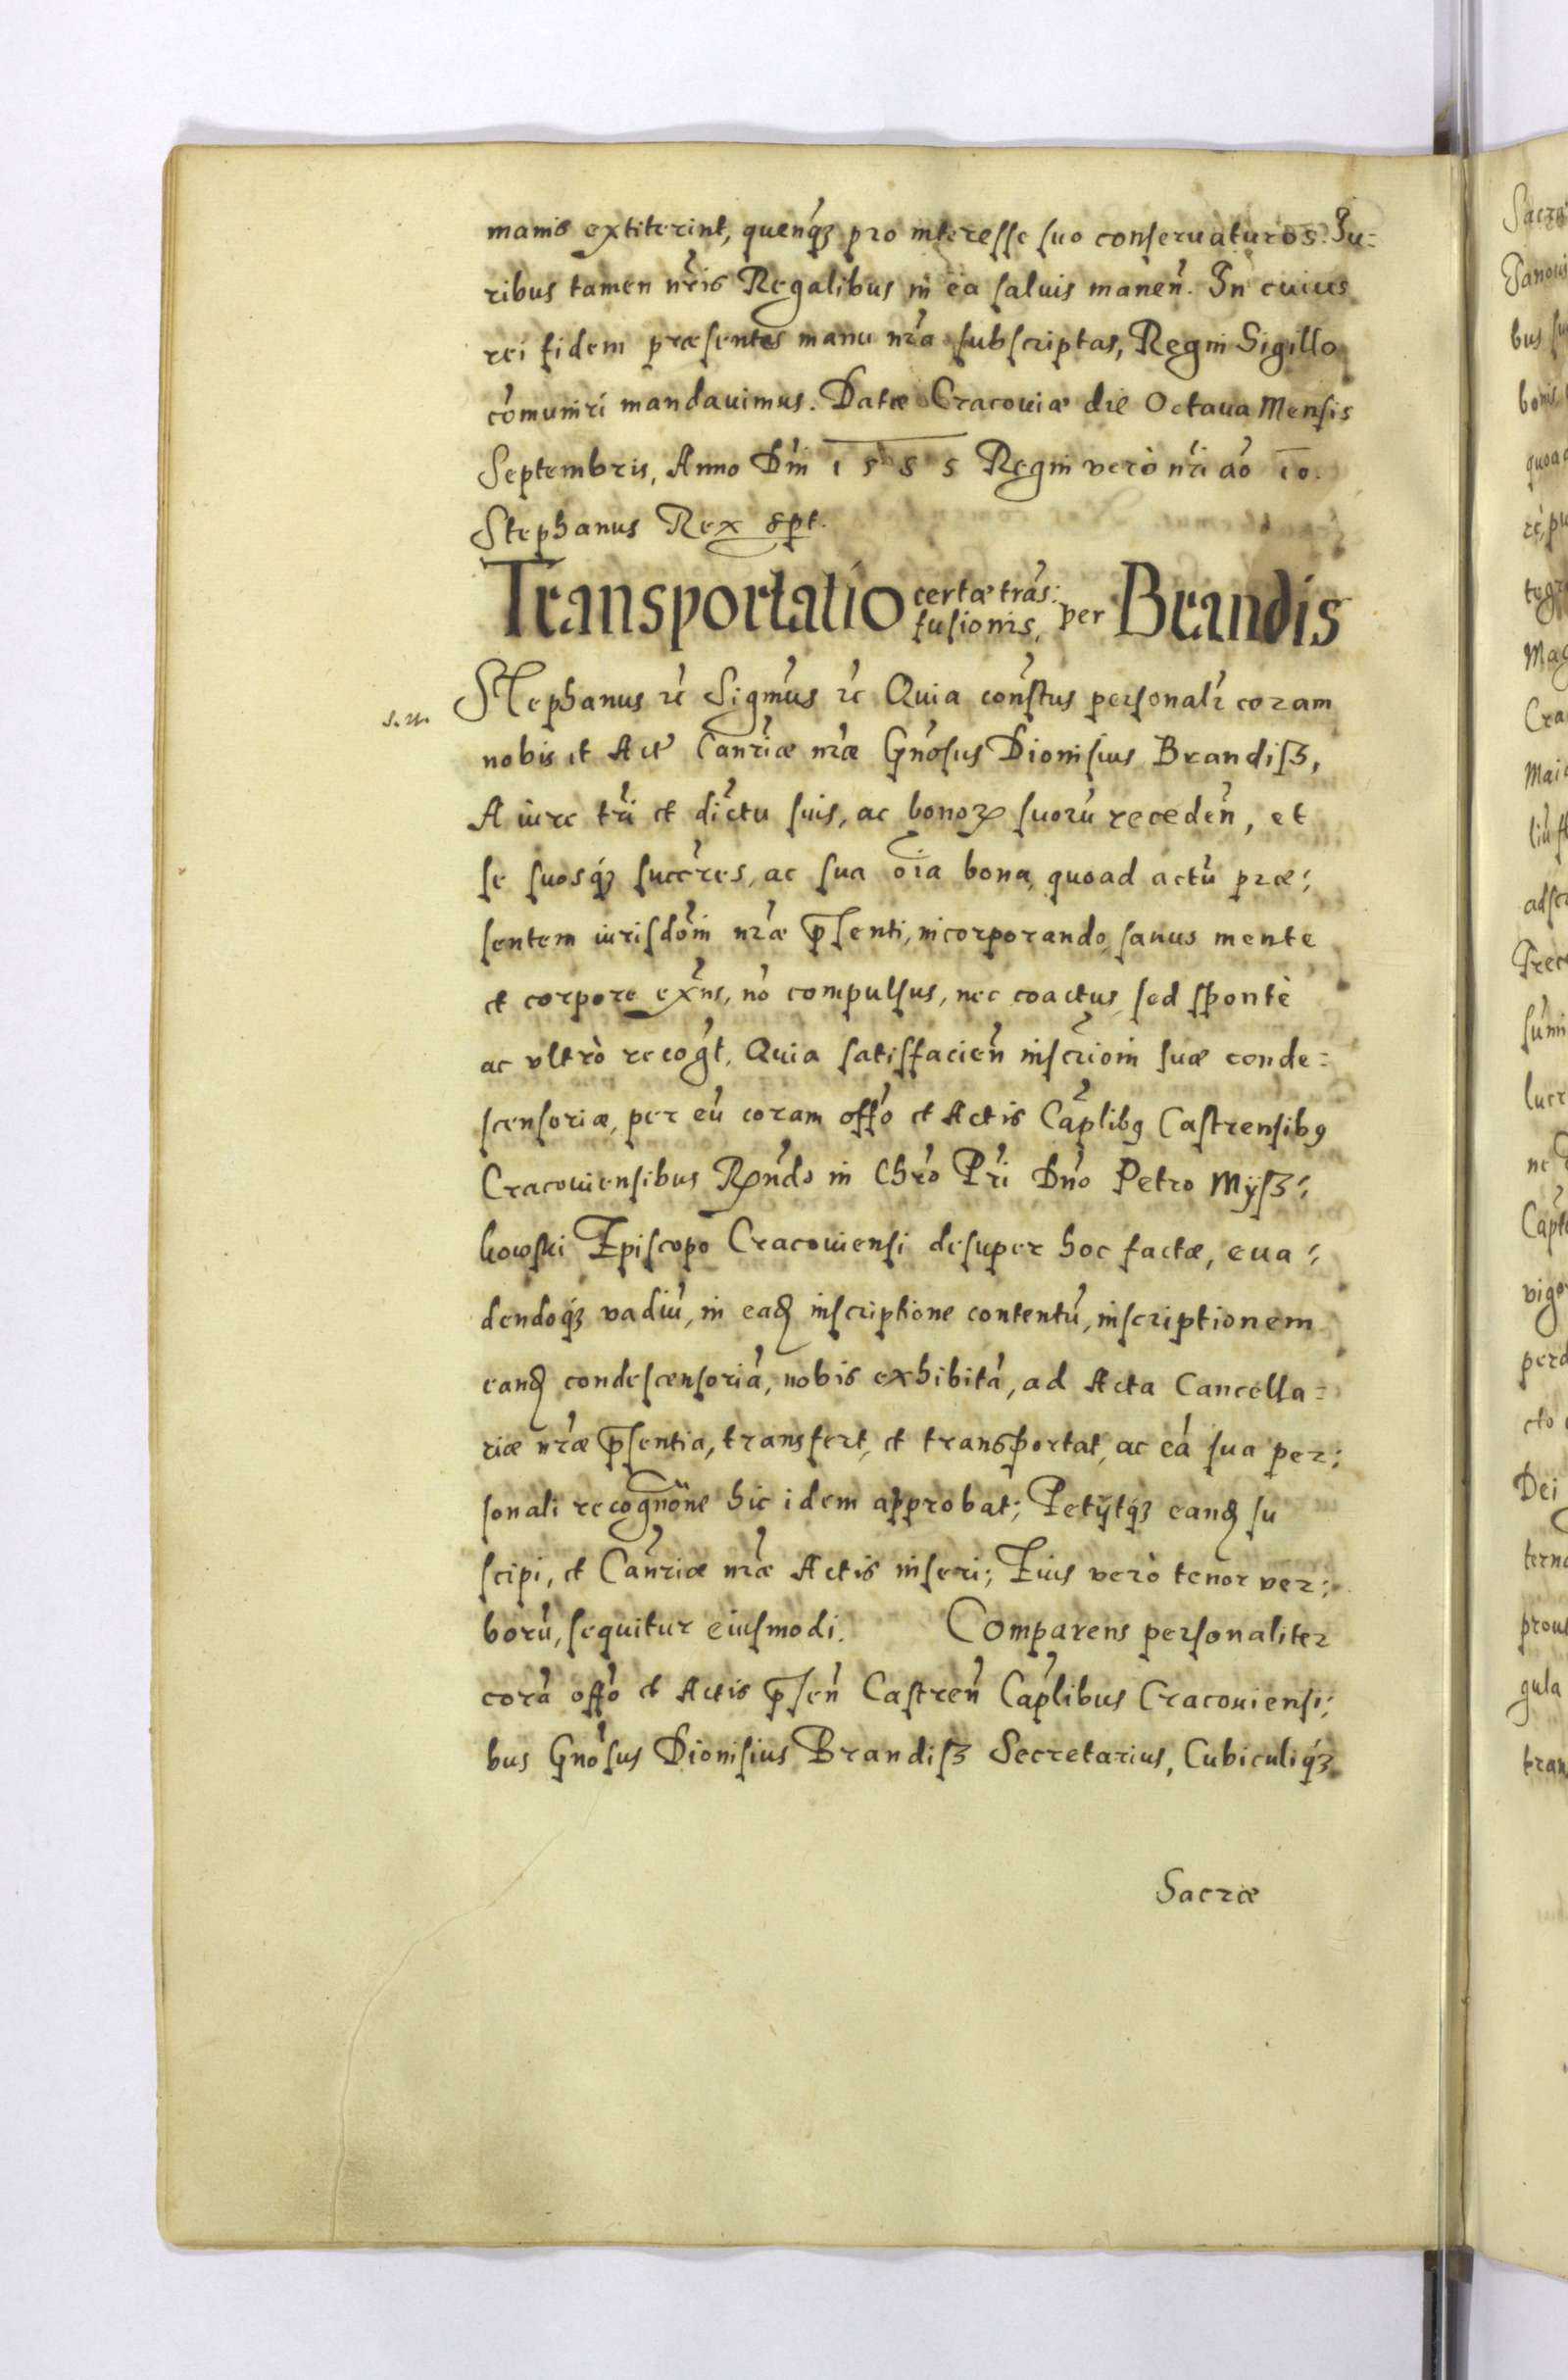 manis extiterint, quenq́ꝫ pro interesse suo conseruaturos. Iu=
ribus tamen nr̃is Regalibus in ea saluis manen̄. In cuius
rei fidem præsentes manu nr̃a subscriptas, Regni Sigillo
cõmuniri mandauimus. Datæ Cracouiæ die Octaua Mensis
Septembris, Anno Dñi 1585 Regni verò nr̃i aõ 10.
Stephanus Rex spt.
Transportatio certæ trãs:
fusionis, per Brandis
s. n.
Stephanus rc̃ Sigm̃us rc̃ Quia cons̃tus personalr̃ coram
nobis et Act̃ Canr̃iæ nr̃æ Gñosus Dionisius Brandisz,
A iure tr̃i et dic̃tu suis, ac bonoꝝ suorũ receden̄, et
se suosq́ꝫ succr̃es, ac sua oĩa bona, quoad actũ præ:
sentem iurisdõni nr̃æ p̃senti, incorporando, sanus mente
et corpore exñs, nõ compulsus, nec coactus, sed spontè
ac vltrò recog̃t, Quia satisfacien̄ inscr̃ioni suæ conde=
scensoriæ, per eũ coram offõ et Actis Cap̃libꝯ Castrensibꝯ
Cracouiensibus Rñdo in Chr̃o Pr̃i Dño Petro Mÿsz:
kowski Episcopo Cracouiensi desuper hoc factæ, eua:
dendoq́ꝫ vadiũ, in eadꝫ inscriptione contentũ, inscriptionem
eandꝫ condescensoriã, nobis exhibitã, ad Acta Cancella=
riæ nr̃æ p̃sentia, transfert, et transportat, ac eã sua per:
sonali recognõne hic idem approbat; Petÿtq́ꝫ eandꝫ su
scipi, et Canr̃iæ nr̃æ Actis inseri; Eius verò tenor ver:
borũ, sequitur eiusmodi. Comparens personaliter
corã offõ et Actis p̃sen̄ Castren̄ Cap̃libus Cracouiensi:
bus Gñosus Dionisius Brandisz Secretarius, Cubiculiq́ꝫ
Sacræ